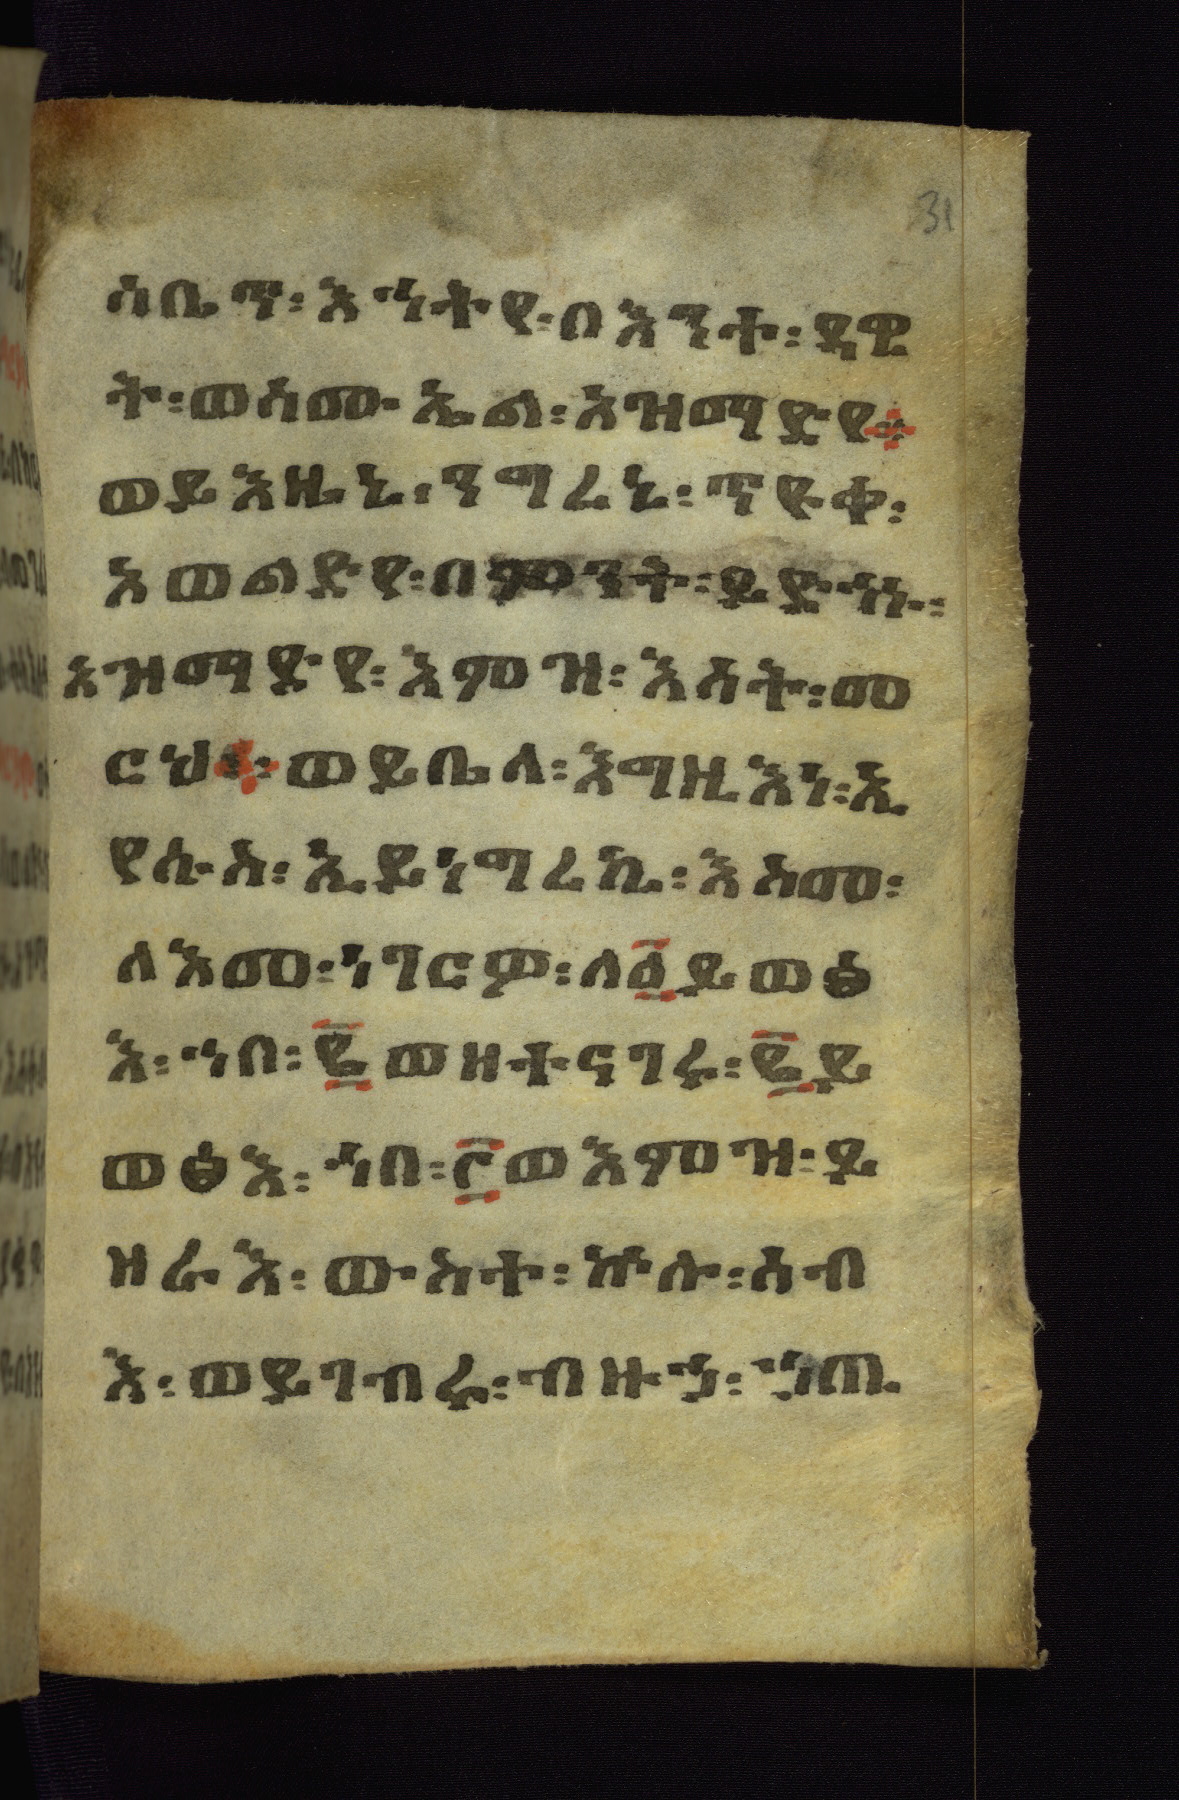 31
ሰቤጥ፡ እኅትየ፡ በእንተ፡ ዳዊ
ት፡ ወስሙ ኤል፡ አዝማድየ፨
ወይእዜኒ፡ ንግረኒ፡ ጥዩቀ፡
አወልድየ፡ በምንት፡ ይድኅኑ፡
አዝማድየ፡ እምዝ፡ እሳት፡ መ
ርህ፨ ወይቤለ፡ እግዚእነ፡ ኢ
የሱስ፡ ኢይነግረኪ፡ እስመ፡
ለእመ፡ ነገርም፡ ለ፩ይወፅ
እ፡ ኀበ፡ ፪ወዘተናገሩ፡ ፪ይ
ወፅእ፡ ኀበ፡ ፫ወእምዝ፡ ይ
ዘራእ፡ ውስተ፡ ኵሉ፡ ሰብ
እ፡ ወይገብሩ፡ ብዙኃ፡ ኃጢ